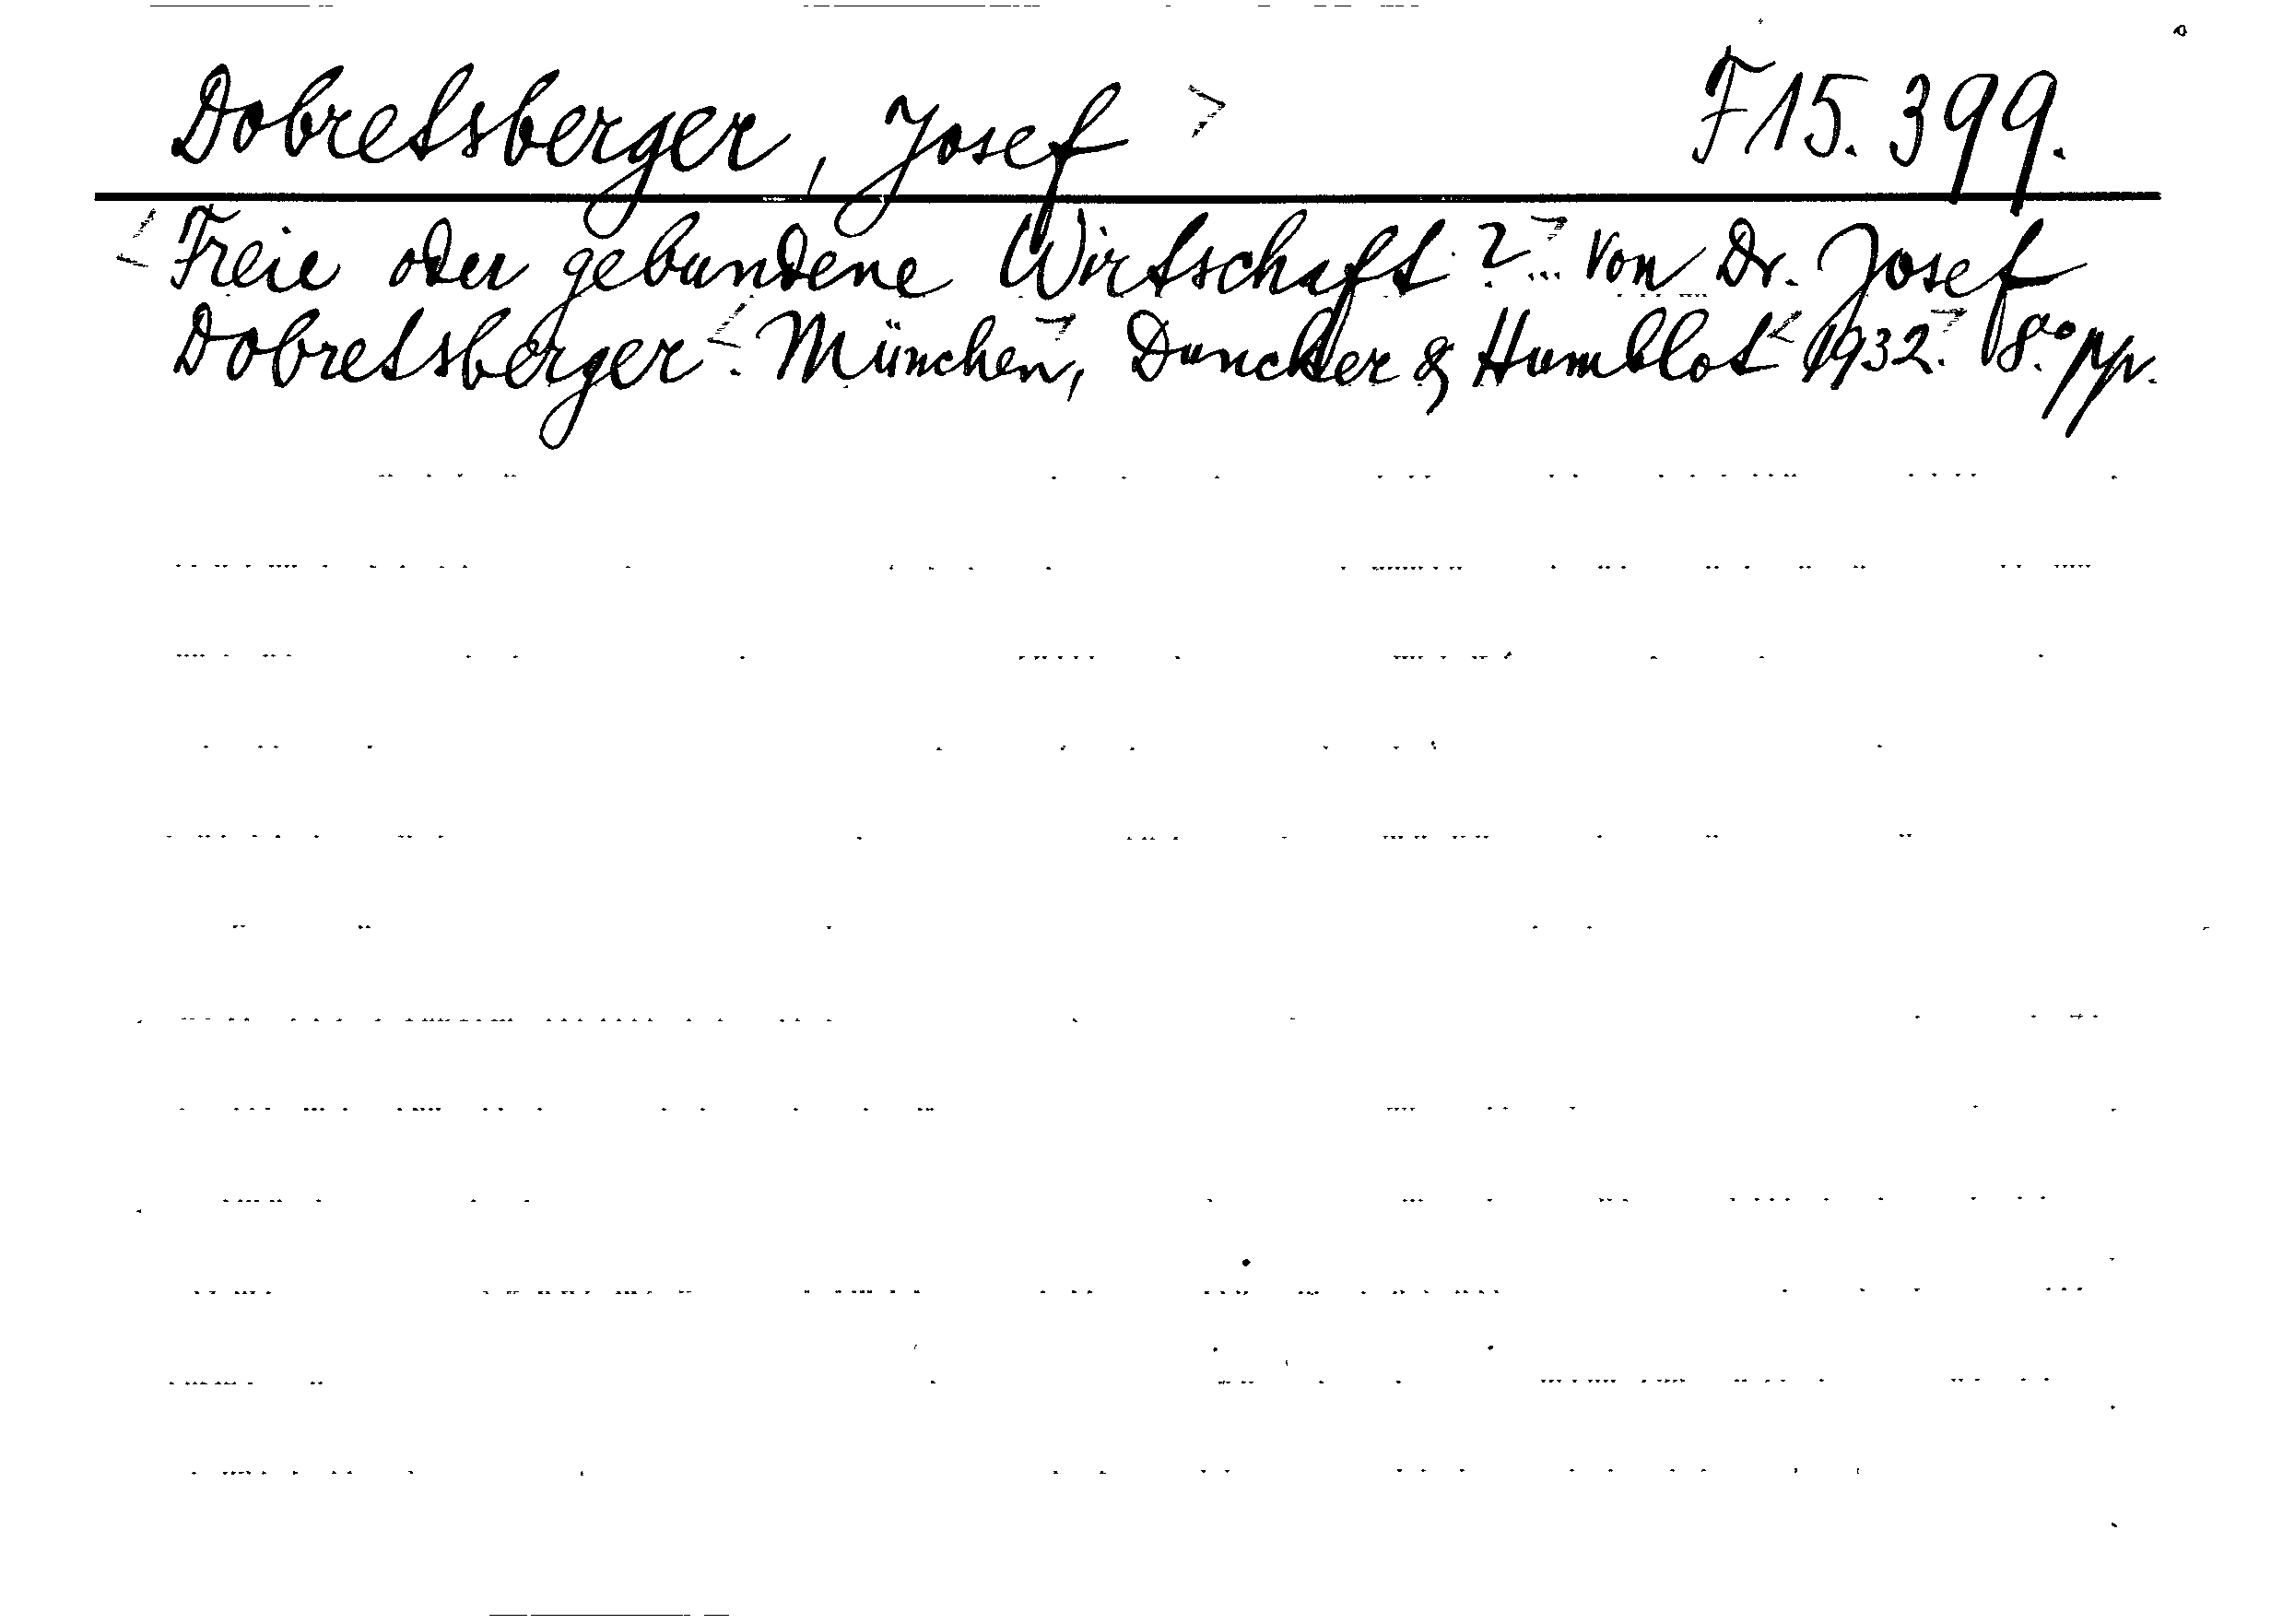 Dobretsberger, Josef F 15.399.
Freie oder gebundene Wirtschaft? ... Von Dr. Josef
Dobretsberger. München, Duncker & Humblot 1932. 8.° pp.